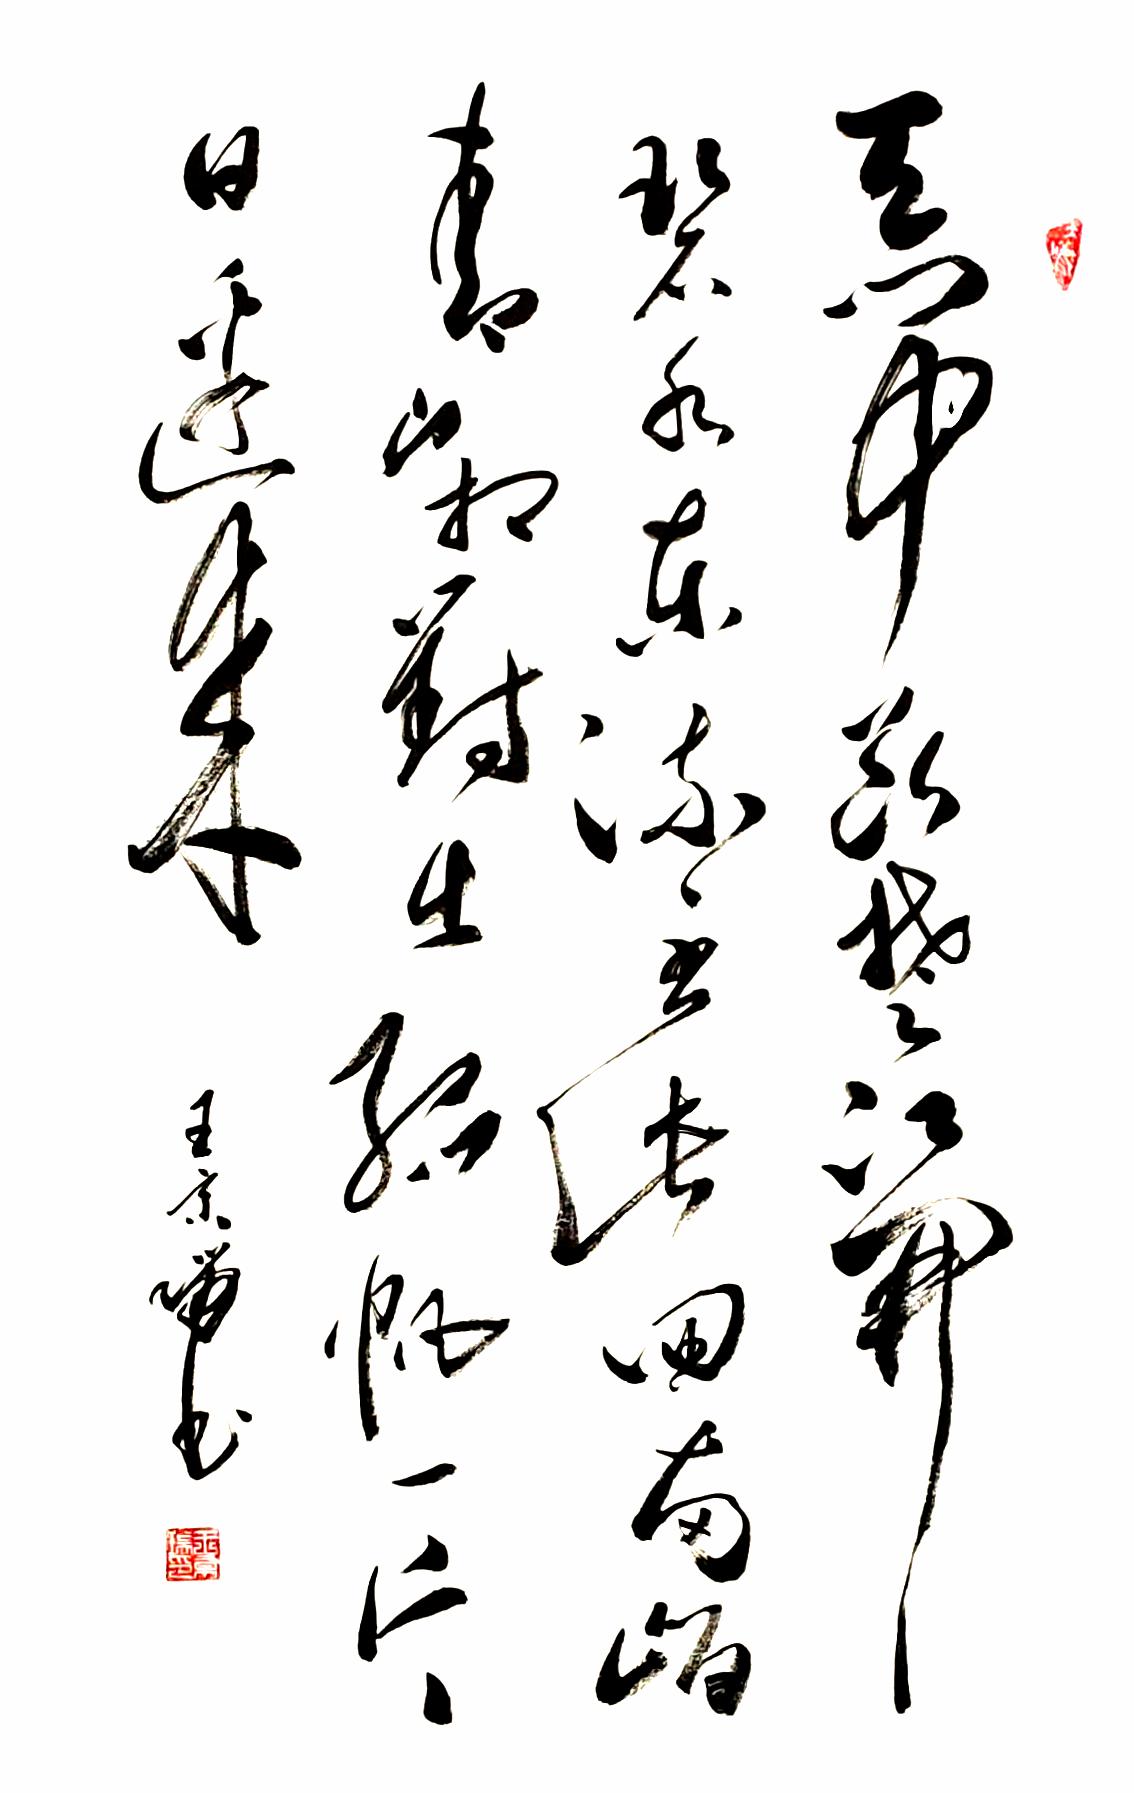 天門中斷楚江開
碧水東流至此回兩岸
青山相對出孤帆一片
日邊來
王京 书